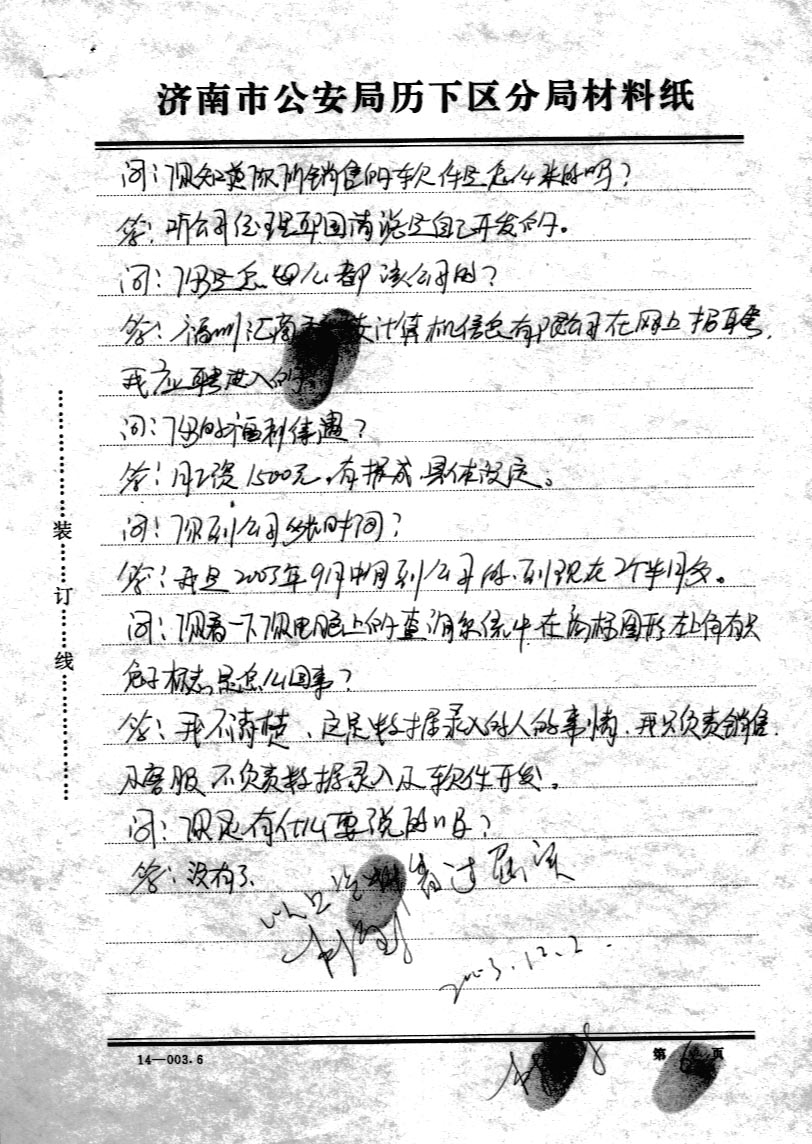 济南市公安局历下区分局材料纸
问：你知道你所销售的软件是怎么来的吗？
答：听公司经理邓国清说是自己开发的。
问：你是怎么到该公司的？
答：福州汇商 计算机信息有限公司在网上招聘，
我应聘进入的
问：你的福利待遇？
答：月工资1500元，有提成，具体没定。
问：你到公司的时间？
答：我是2003年9月中旬到公司的，到现在2个半月多。
问：你看一下你电脑上的查询系统中在商标图形左上角有只
兔子标志是怎么回事？
答：我不清楚、这是数据录入的人的事情，我只负责销售
及客服不负责数据录入及软件开发。
问：你还有什么要说的吗？
答：没有了
以上笔录看过属实
2003.12.2.
装
订
线
14—003.6
第 页